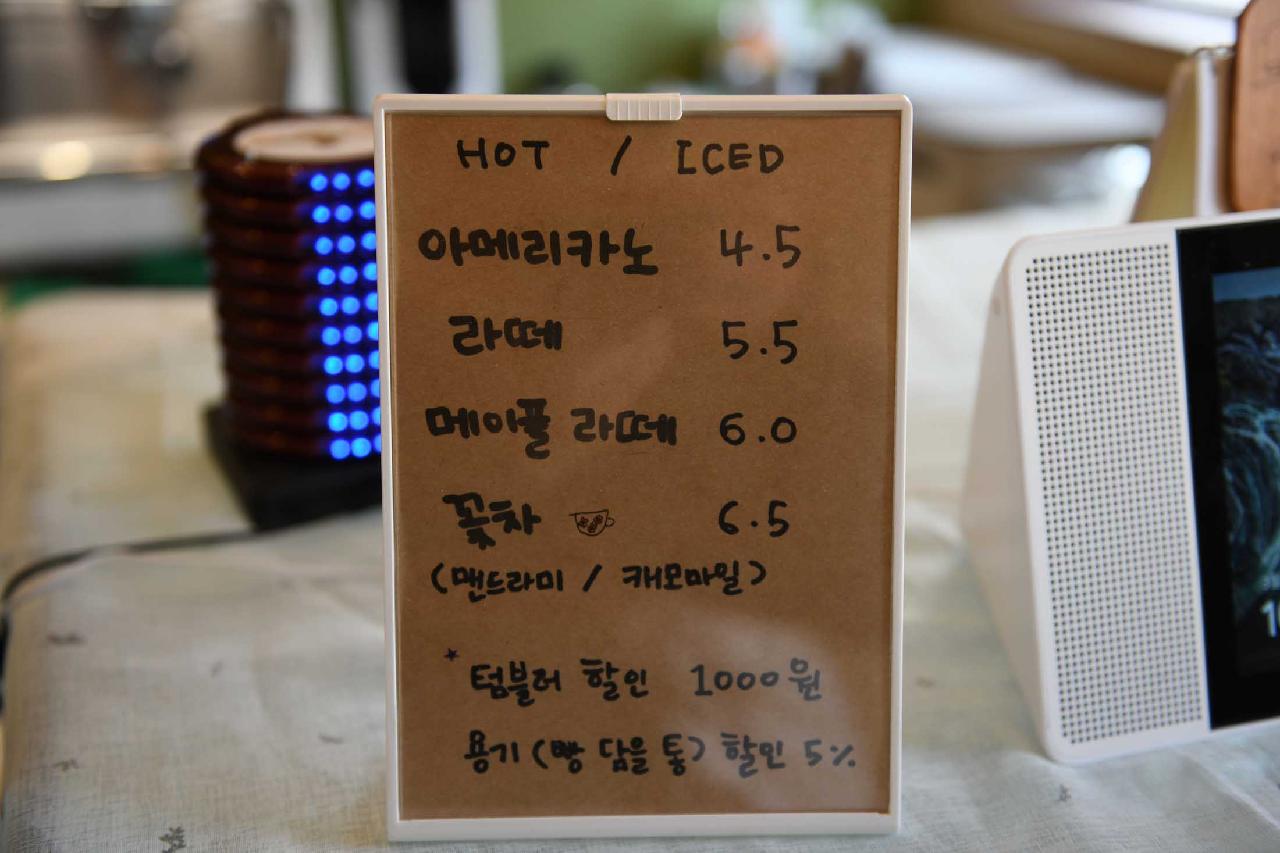 HOT / ICED
아메리카노 4.5
라떼 5.5
메이플 라떼 6.0
꽃차 6.5
(맨드라미 / 캐모마일)
* 텀블러 할인 1000원
용기 (빵 담을 통) 할인 5%